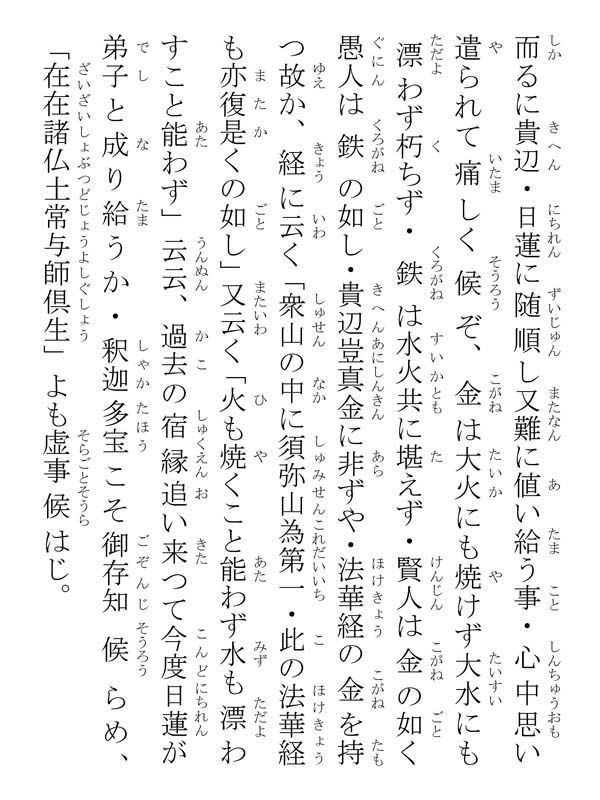 而るに貴辺・日蓮に随順し又難に値い給う事・心中思い
遣られて痛しく候ぞ、金は大火にも焼けず大水にも
漂わず朽ちず・鉄は水火共に堪えず・賢人は金の如く
愚人は鉄の如し・貴辺豈真金に非ずや・法華経の金を持
つ故か、経に云く「衆山の中に須弥山為第一・此の法華経
も亦復是くの如し」又云く「火も焼くこと能わず水も漂わ
すこと能わず」云云、過去の宿縁追い来つて今度日蓮が
弟子と成り給うか・釈迦多宝こそ御存知候らめ、
「在在諸仏土常与師倶生」よも虚事候はじ。